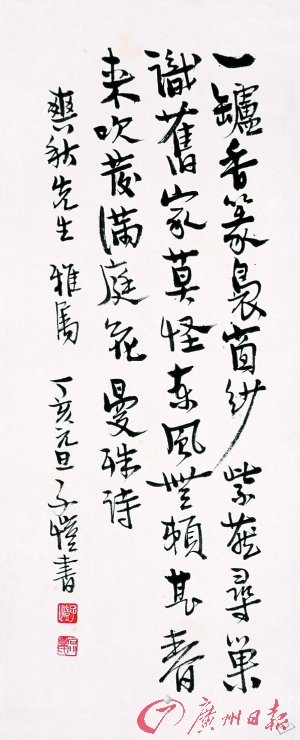 一罏香篆裊窗紗 紫燕尋巢
識舊家莫怪東風無賴甚春
来吹發滿庭花 曼殊詩
爽秋先生 雅属 丁亥元旦子愷書
廣州日報